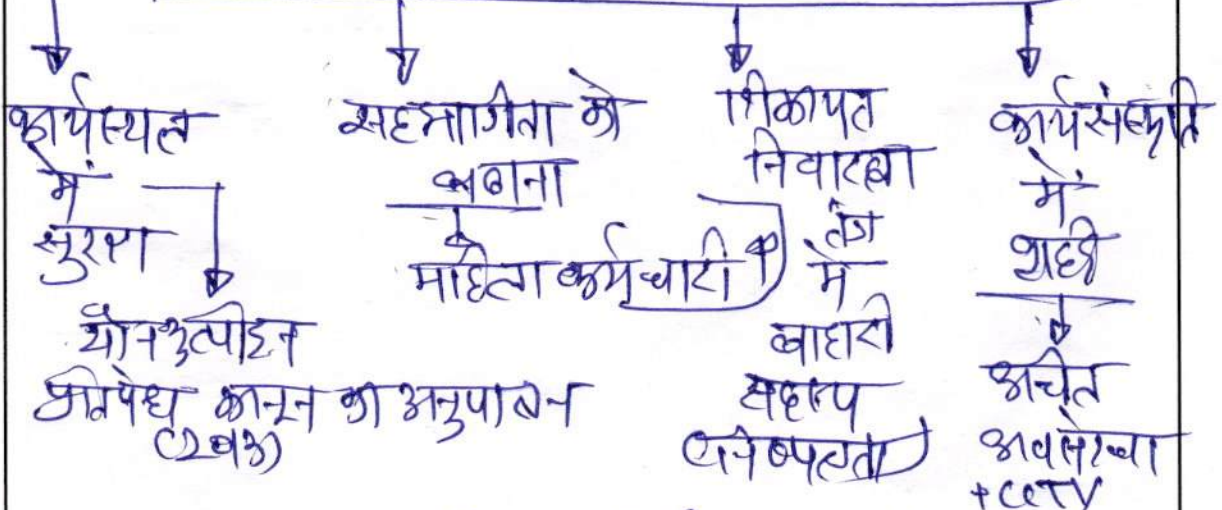 कार्यस्थल
में
सुरक्षा
यौन उत्पीड़न
प्रतिषेध कानून का अनुपालन
(2013)
सहभागिता को
बढ़ाना
महिला कर्मचारी ↑
शिकायत
निवारण
तंत्र
में
बाहरी
सदस्य
(निष्पक्षता)
कार्यसंस्कृति
में
उचित
अवसंरचना
+ CCTV